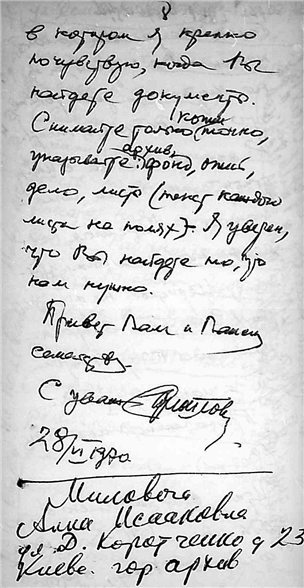 8
в котором я крепко
почувствую, когда Вы
найдете документы.
копии
Снимайте только точно,
архив,
указывайте: фонд, опись,
дело, листы (текст каждого
листа на полях). Я уверен,
что Вы найдете то, что
нам нужно.
Привет Вам и Вашему
семейству.
С уваж
28/VI 1970
Миловога
Анна Исааковна
ул. Д. Коротченко д 23
Киев. гор архив